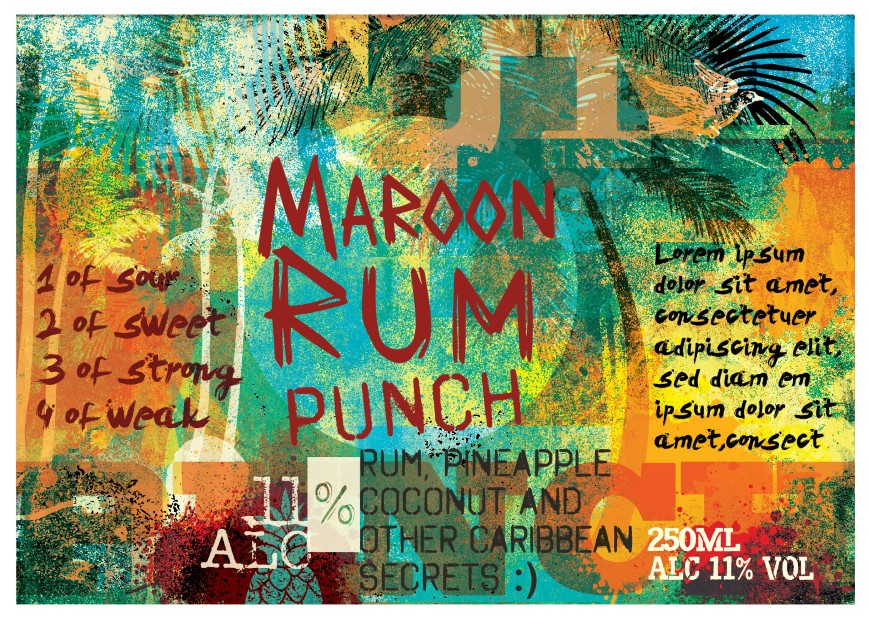 MAROON
RUM
PUNCH
1 of sour
2 of sweet
3 of strong
4 of weak
Lorem ipsum
dolor sit amet,
consectetuer
adipiscing elit,
sed diam em
ipsum dolor sit
amet,consect
11%
ALC
RUM, PINEAPPLE
COCONUT AND
OTHER CARIBBEAN
SECRETS :)
250ML
ALC 11% VOL